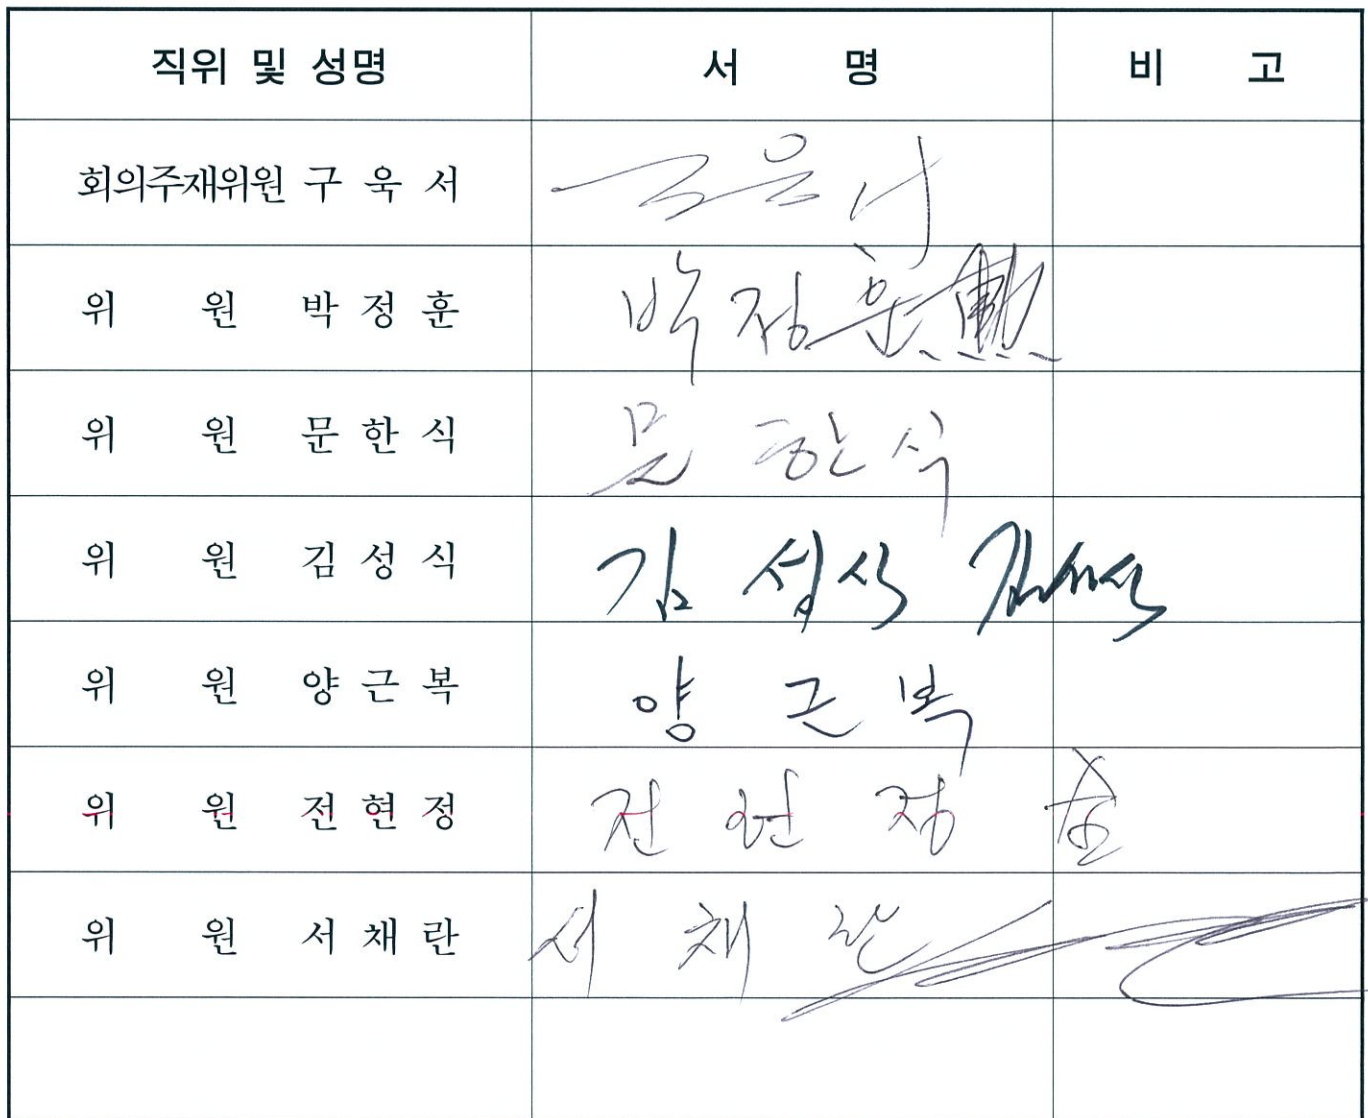 직위 및 성명 서 명 비 고
회의주재위원 구 욱 서
위 원 박 정 훈 박정훈
위 원 문 한 식 문 한 식
위 원 김 성 식 김 성 식
위 원 양 근 복 양 근 복
위 원 전 현 정 전 현 정
위 원 서 채 란 서 채 란